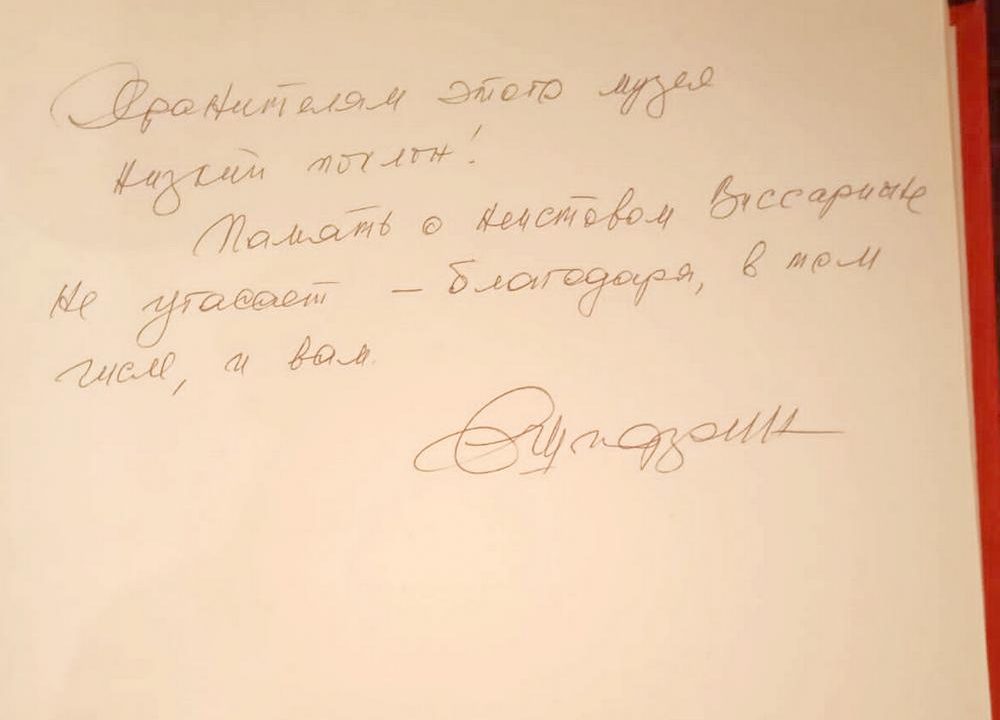 Хранителям этого музея
низкий поклон!
Память о неистовом Виссарионе
не угасает – благодаря, в том
числе, и вам.